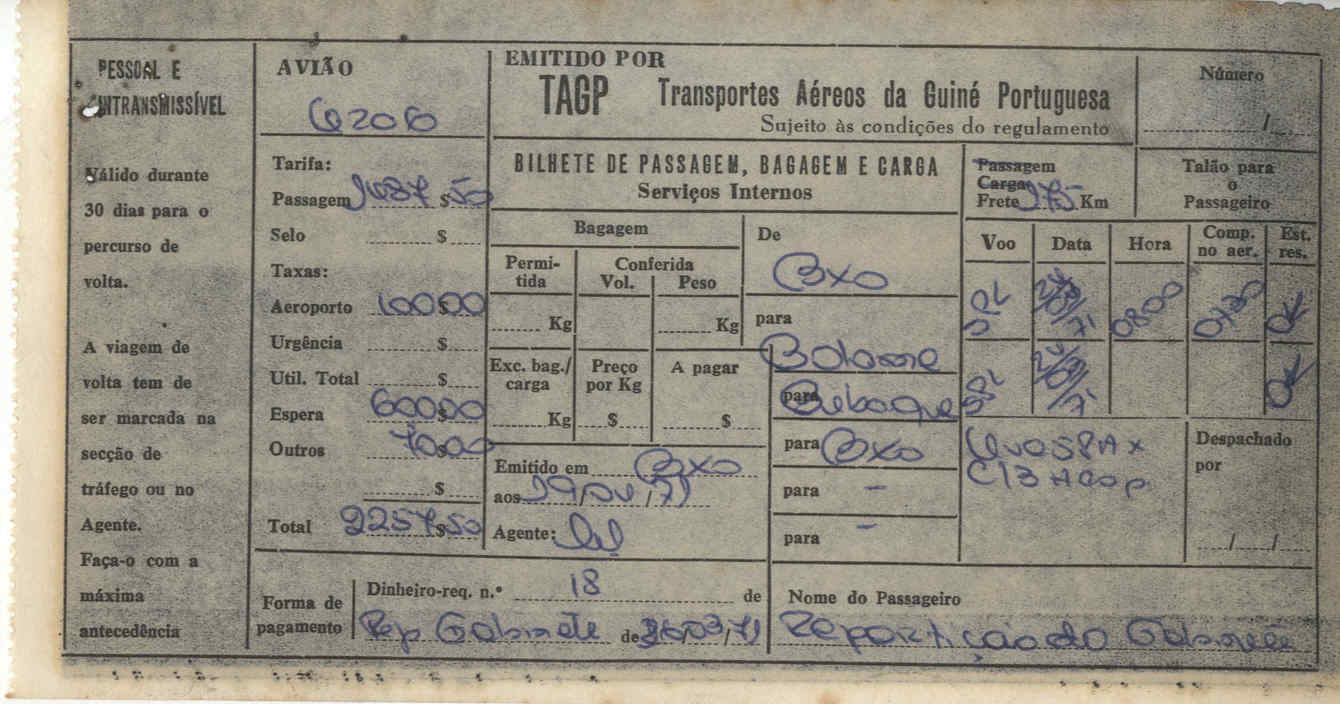 PESSOAL E
INTRANSMISSÍVEL
Válido durante
30 dias para o
percurso de
volta.
A viagem de
volta tem de
ser marcada na
secção de
tráfego ou no
Agente.
Faça-o com a
máxima
antecedência
AVIÃO
Tarifa:
Passagem $50
Selo $
Taxas:
Aeroporto 100$00
Urgência $
Util. Total $
Espera 600$00
Outros 70$00
$
Total 2257$50
EMITIDO POR
TAGP Transportes Aéreos da Guiné Portuguesa
Sujeito às condições do regulamento
BILHETE DE PASSAGEM, BAGAGEM E CARGA
Serviços Internos
Bagagem
Permitida
Conferida
Vol. Peso
Kg Kg
Exc. bag./carga
Preço por Kg
A pagar
Kg $ $
Emitido em BXO
aos
Agente:
De
BXO
para
Bolama
para
Bubaque
para BXO
para -
para -
Passagem
Carga
Frete 375 Km
Número
/
Talão para
o
Passageiro
Voo Data Hora Comp. no aer. Est. res.
SPL 71 0800 0730 OK
SPL 71 OK
Despachado
por
/ /
Forma de
pagamento
Dinheiro-req. n.º 18 de
Rep Gabinete de
Nome do Passageiro
Repartição do Gabinete